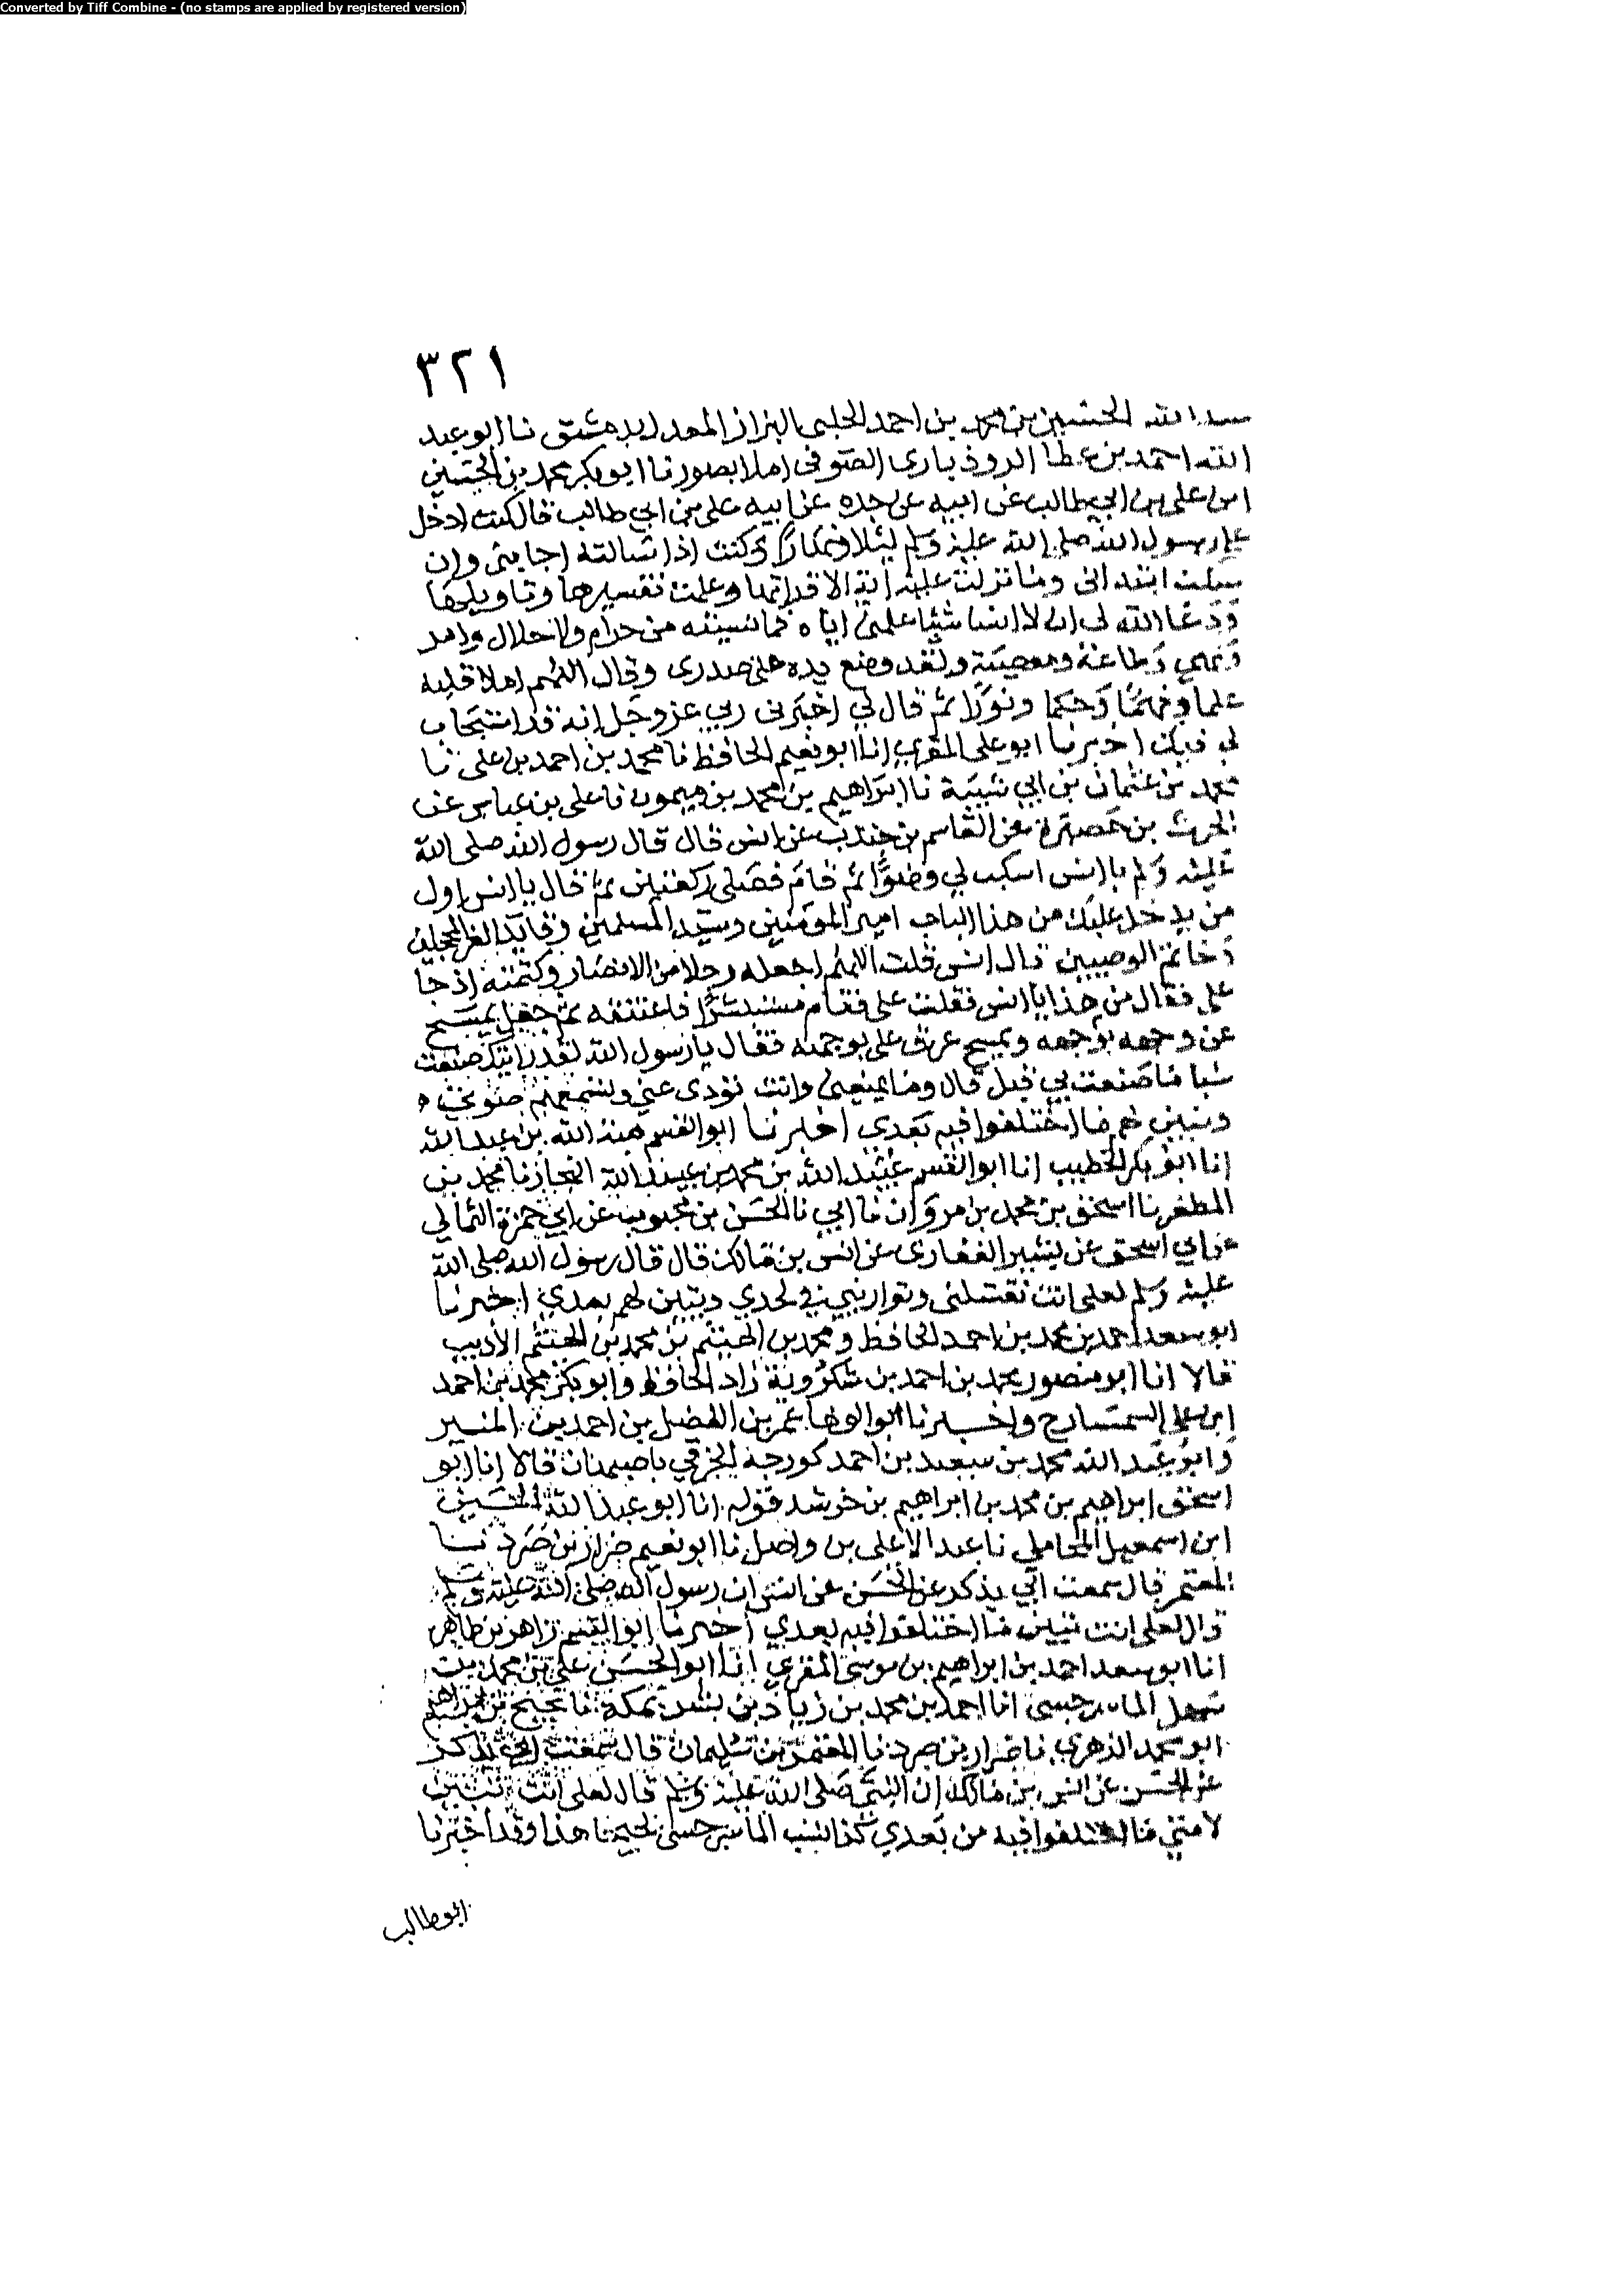 Converted by Tiff Combine - (no stamps are applied by registered version)
٣٢١
الله الحسين بن محمد بن احمد الحلبي البزاز المعدل بدمشق نا ابو عبد
الله احمد بن عطا الروذباري الصوفي املا بصور نا ابو بكر محمد بن الحسين
ابن علي بن ابي طالب عن ابيه عن جده عن ابيه علي بن ابي طالب قال كنت ادخل
على رسول الله صلى الله عليه وسلم ليلا ونهارا وكنت اذا سالته اجابني وان
سكت ابتداني وما نزلت عليه اية الا قراتها وعلمت تفسيرها وتاويلها
ودعا الله لي ان لا انسا شيئا علمني اياه فما نسيته من حرام ولا حلال وامر
ونهي وطاعة ومعصية ولقد وضع يده على صدري وقال اللهم املا قلبه
علما وفهما وحكما ونورا ثم قال لي اخبرني ربي عز وجل انه قد استجاب
لي فيك اخبرنا ابو علي المقري انا ابو نعيم الحافظ نا محمد بن احمد بن علي نا
محمد بن عثمان بن ابي شيبة نا ابراهيم بن محمد بن ميمون نا علي بن عباس عن
الحرث بن حصيرة عن القاسم بن جندب عن انس قال قال رسول الله صلى الله
عليه وسلم يا انس اسكب لي وضوا ثم قام فصلى ركعتين ثم قال يا انس اول
من يدخل عليك من هذا الباب امير المومنين وسيد المسلمين وقايد الغر المحجلين
وخاتم الوصيين قال انس قلت اللهم اجعله رجلا من الانصار وكتمته اذ جا
علي فقال من هذا يا انس فقلت علي فقام مستبشرا فاعتنقه ثم جعل يمسح
عن وجهه بوجهه ويمسح عرق علي بوجهه فقال يا رسول الله لقد رايتك صنعت
شيا ما صنعت بي قبل قال وما يمنعني وانت تودي عني وتسمعهم صوتي
وتبين لهم ما اختلفوا فيه بعدي اخبرنا ابو القسم هبة الله بن عبد الله
انا ابو بكر الخطيب انا ابو القسم عبيد الله بن محمد بن عبيد الله النجار نا محمد بن
المظفر نا اسحق بن محمد بن مروان نا ابي نا الحسن بن محبوب عن ابي حمزة الثمالي
عن ابي اسحق عن بشير الغفاري عن انس بن مالك قال قال رسول الله صلى الله
عليه وسلم لعلي انت تغسلني وتواريني في لحدي وتبين لهم بعدي اخبرنا
ابو سعد احمد بن محمد بن احمد الحافظ ومحمد بن الهيثم بن محمد بن الهيثم الاديب
قالا انا ابو منصور محمد بن احمد بن شكرويه زاد الحافظ وابو بكر محمد بن احمد
ابن علي السمسار ح واخبرنا ابو الوفا عمر بن الفضل بن احمد بن المميز
وابو عبد الله محمد بن سعيد بن احمد كورجه الخرقي باصبهان قالا انا ابو
اسحق ابراهيم بن محمد بن ابراهيم بن خرشد قوله انا ابو عبد الله الحسين
ابن اسمعيل المحاملي نا عبد الاعلى بن واصل نا ابو نعيم ضرار بن صرد نا
المعتمر قال سمعت ابي يذكر عن الحسن عن انس ان رسول الله صلى الله عليه وسلم
قال لعلي انت تبين ما اختلفوا فيه بعدي اخبرنا ابو القسم زاهر بن طاهر
انا ابو سعد احمد بن ابراهيم بن موسى المقري انا ابو الحسن علي بن محمد بن
سهل الماسرجسي انا احمد بن محمد بن زياد بن بشر بمكة نا نجيح بن ابراهيم
ابو محمد الزهري نا ضرار بن صرد نا المعتمر بن سليمان قال سمعت ابي يذكر
عن الحسن عن انس بن مالك ان النبي صلى الله عليه وسلم قال لعلي انت تبين
لامتي ما اختلفوا فيه من بعدي كذا نسب الماسرجسي نجيحا هذا وقد اخبرنا
ابو طالب